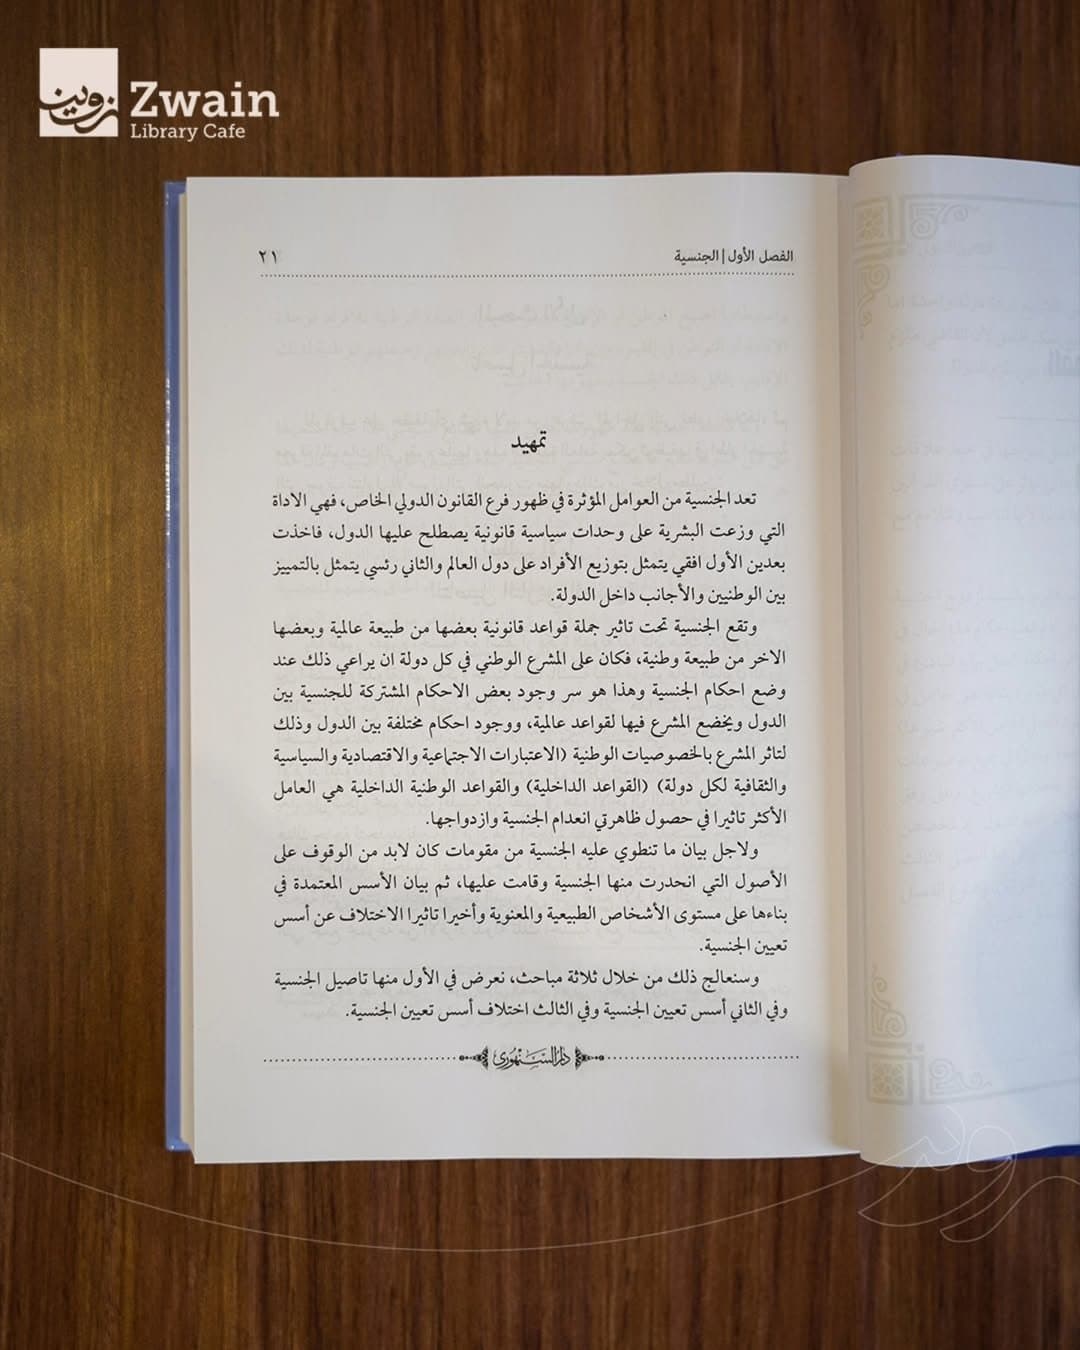 زوين
Zwain
Library Cafe
الفصل الأول | الجنسية ٢١
تمهيد
تعد الجنسية من العوامل المؤثرة في ظهور فرع القانون الدولي الخاص، فهي الاداة
التي وزعت البشرية على وحدات سياسية قانونية يصطلح عليها الدول، فاخذت
بعدين الأول افقي يتمثل بتوزيع الأفراد على دول العالم والثاني رئسي يتمثل بالتمييز
بين الوطنيين والأجانب داخل الدولة.
وتقع الجنسية تحت تاثير جملة قواعد قانونية بعضها من طبيعة عالمية وبعضها
الاخر من طبيعة وطنية، فكان على المشرع الوطني في كل دولة ان يراعي ذلك عند
وضع احكام الجنسية وهذا هو سر وجود بعض الاحكام المشتركة للجنسية بين
الدول ويخضع المشرع فيها لقواعد عالمية، ووجود احكام مختلفة بين الدول وذلك
لتاثر المشرع بالخصوصيات الوطنية (الاعتبارات الاجتماعية والاقتصادية والسياسية
والثقافية لكل دولة) (القواعد الداخلية) والقواعد الوطنية الداخلية هي العامل
الأكثر تاثيرا في حصول ظاهرتي انعدام الجنسية وازدواجها.
ولاجل بيان ما تنطوي عليه الجنسية من مقومات كان لابد من الوقوف على
الأصول التي انحدرت منها الجنسية وقامت عليها، ثم بيان الأسس المعتمدة في
بناءها على مستوى الأشخاص الطبيعية والمعنوية وأخيرا تاثيرا الاختلاف عن أسس
تعيين الجنسية.
وسنعالج ذلك من خلال ثلاثة مباحث، نعرض في الأول منها تاصيل الجنسية
وفي الثاني أسس تعيين الجنسية وفي الثالث اختلاف أسس تعيين الجنسية.
دار السنهوري